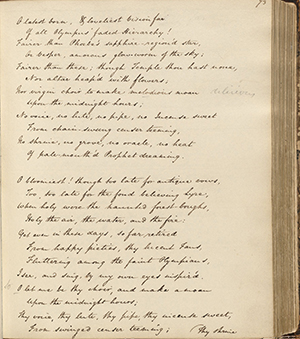 73
O latest born, & loveliest vision far
Of all Olympus' faded Hierarchy!
Fairer than Phœbe's sapphire-region'd star,
Or Vesper, amorous glowworm of the sky;
Fairer than these, though Temple thou hast none,
Nor altar heap'd with flowers;
Nor virgin choir to make melodious moan
Upon the midnight hours;
No voice, no lute, no pipe, no Incense sweet
From chain-swung censer teeming,
No shrine, no grove, no oracle, no heat
Of pale-mouth'd Prophet dreaming.
O bloomiest! though too late for antique vows,
Too, too late for the fond believing Lyre,
When holy were the haunted forest boughs,
Holy the air, the water, and the fire:
Yet even in these days, so far retired
From happy pieties, thy lucent Fans,
Fluttering among the faint Olympians,
I see, and sing, by my own eyes inspired.
O let me be thy choir, and make a moan
Upon the midnight hours;
Thy voice, thy lute, thy pipe, thy incense sweet,
From swinged censer teeming; Thy shrine